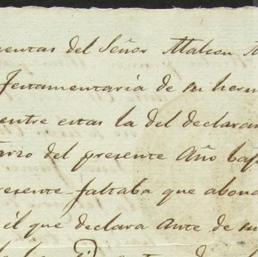 uentas del Señor Malcon
Testamentaria de su herm
entre estas la del declaran
arzo del presente Año baj
resente faltaba que abona
il que declara ante de su